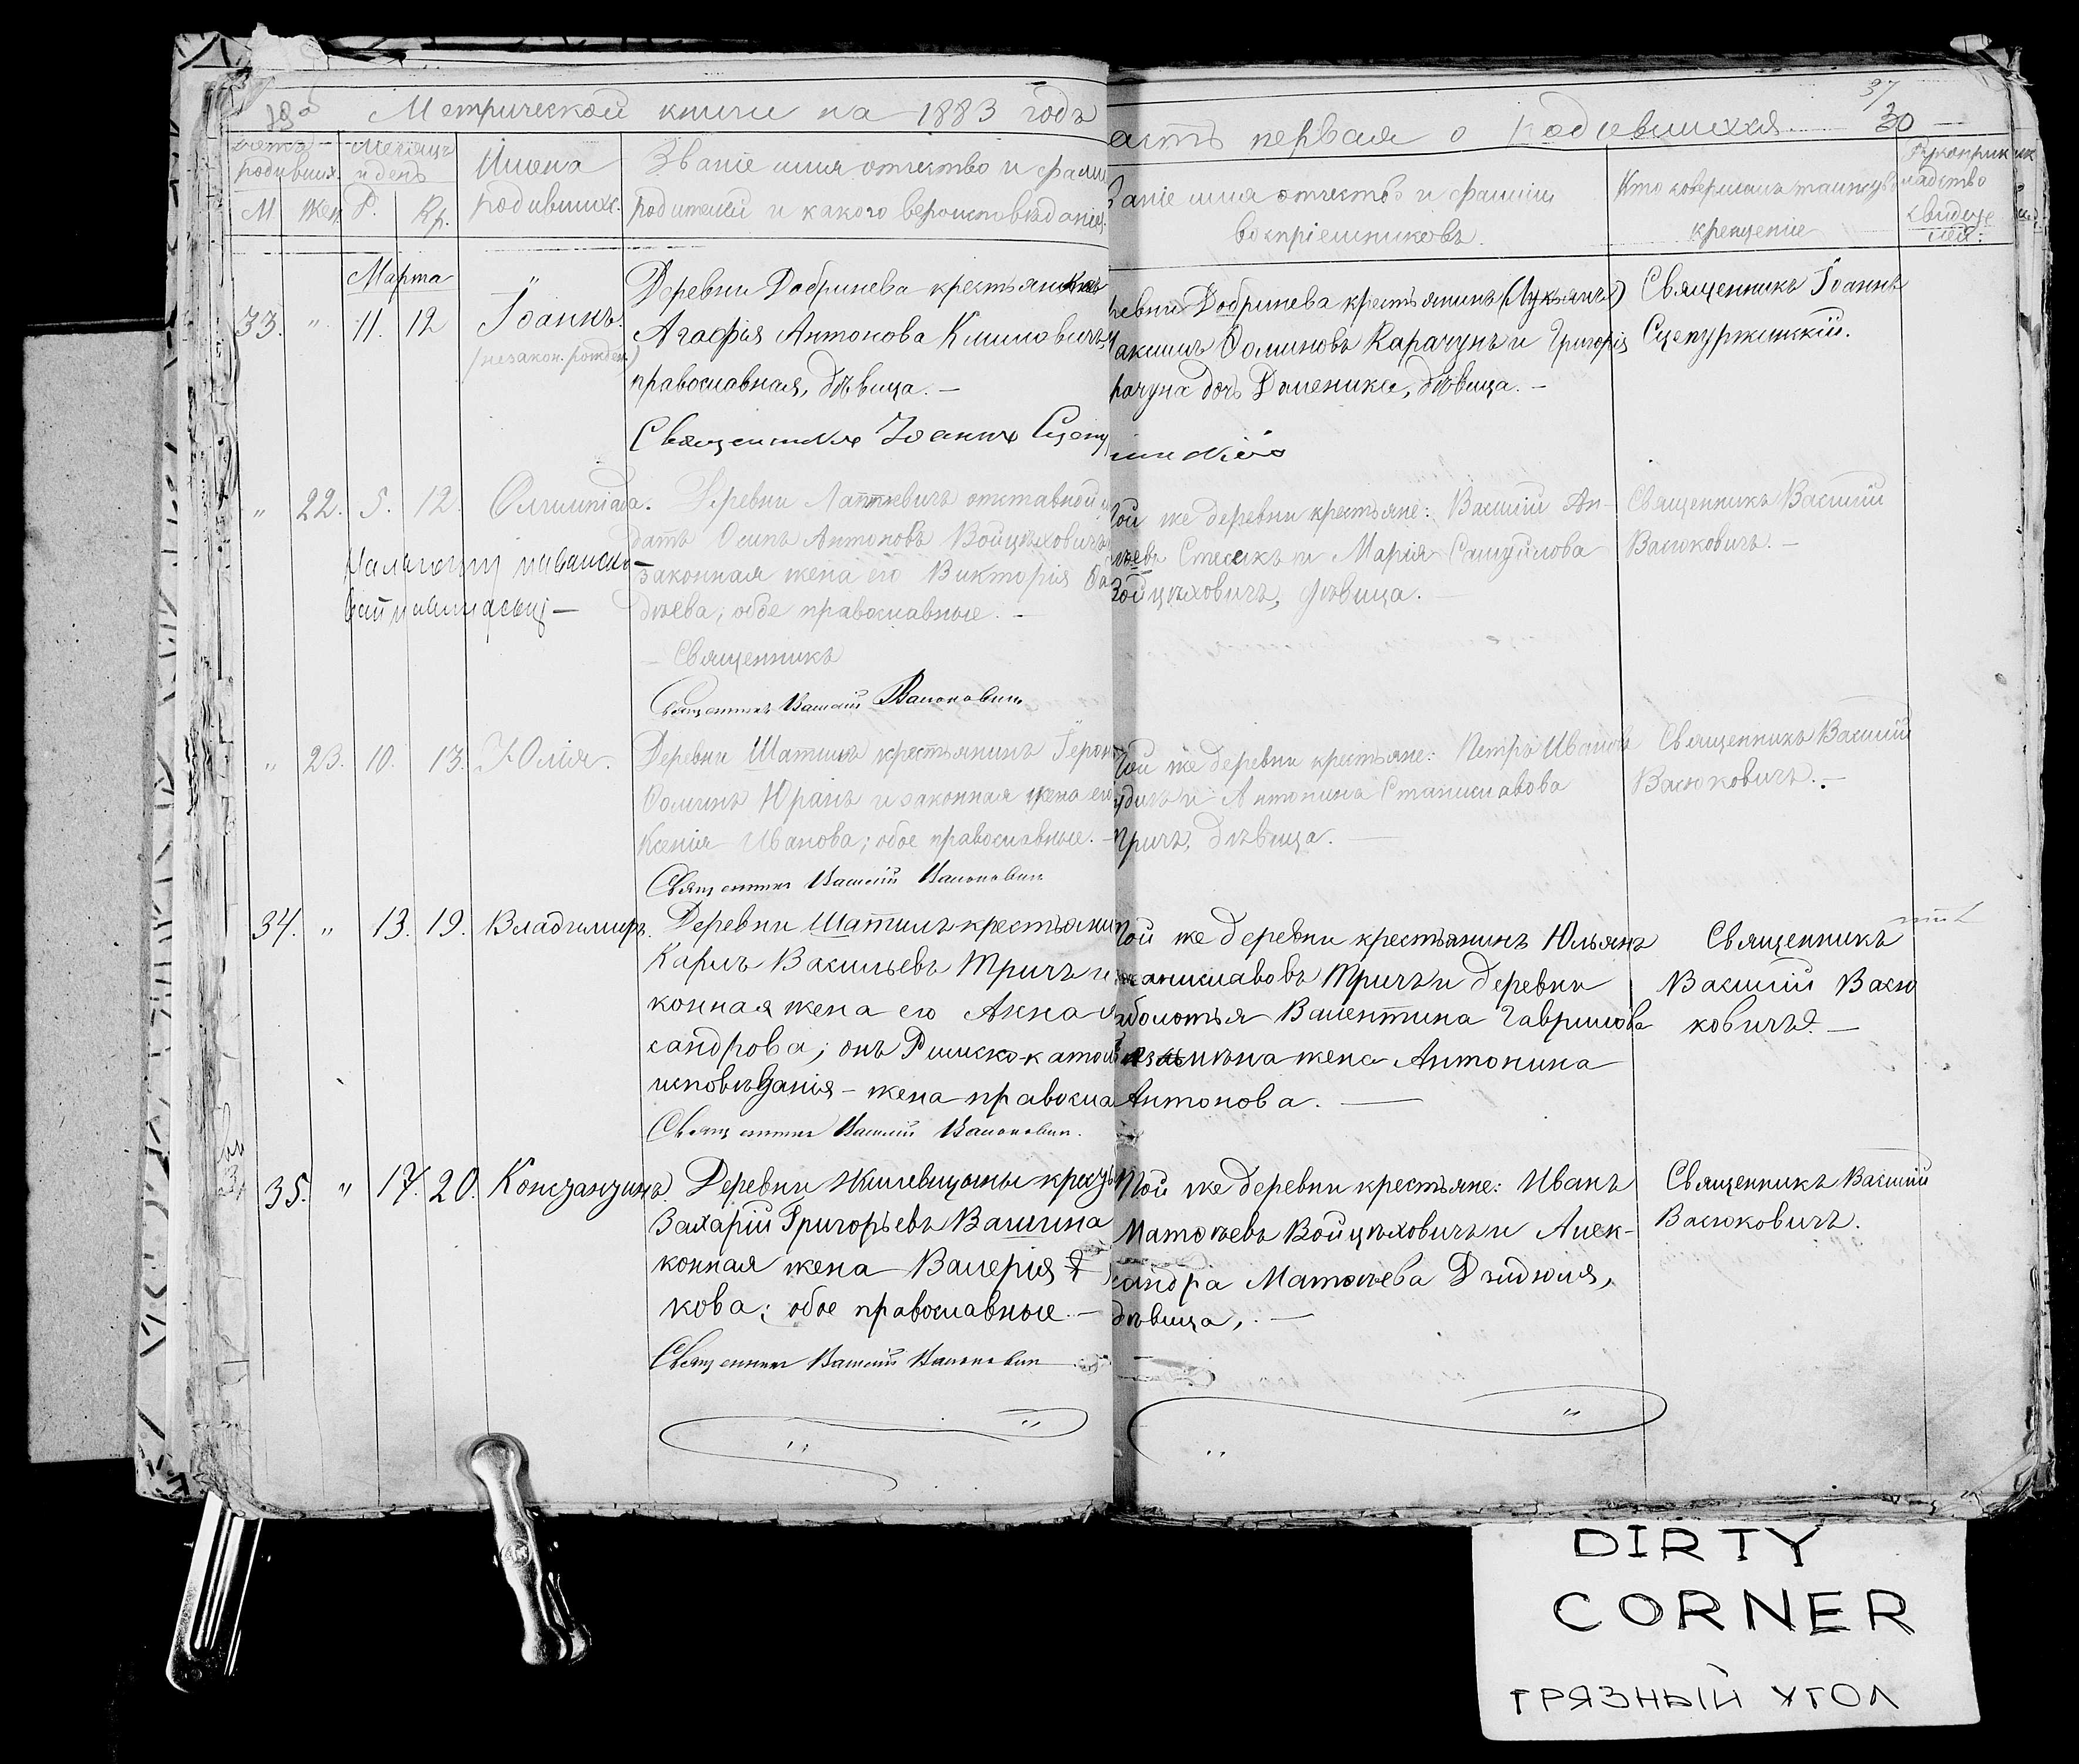 Метрической книги на 1883 годъ
асть первая о Родившихся
37
30
родивших.
Месяцъ
и день
М
Жен
Р.
Кр.
Имена
родивших.
Званіе имя отчество и фами
родителей и какого вероисповѣданія.
Званіе имя отчество и фамилія
воспріемниковъ.
Кто совершалъ таинство
крещеніе
Марта
33. " 11. 12 Іоаннъ.
(незакон. рожден.)
Деревни Добринева крестьянка
Агафія Антонова Климовичъ,
православная, дѣвица. —
Священникъ Іоаннъ Сцепу
ревни Добринева крестьянинъ
аксимъ Фоминовъ Карачунъ и Григорія
рачуна дочь Доменика, дѣвица. —
Священникъ Іоаннъ
Сцепуржинскій.
" 22. 5. 12. Олимпіада.
Деревни Латыевичъ отставной
датъ Осипъ Антоновъ Войцѣховичъ
законная жена его Викторія Фа
дѣева; обое православные. —
Священникъ
Священникъ Василій Васюковичъ
Той же деревни крестьяне: Василій Ан-
Стасикъ и Марія Самуйлова
Войцѣховичъ, дѣвица. —
Священникъ Василій
Васюковичъ. —
" 23. 10. 13. Юлія.
Деревни Шатилъ крестьянинъ Герон
Фоминъ Юранъ и законная жена его
Ксенія Иванова; обое православные. —
Священникъ Василій Васюковичъ
Той же деревни крестьяне: Петръ Ивановъ
и Антонина Станиславова
Тричъ, дѣвица. —
Священникъ Василій
Васюковичъ. —
34. " 13. 19. Владимиръ.
Деревни Шатилъ крестьянин
Карлъ Васильевъ Тричъ и
конная жена его Анна
сандрова; онъ Римско-катол
исповѣданія — жена правосла
Священникъ Василій Васюковичъ.
Той же деревни крестьянинъ Юльянъ
Станиславовъ Тричъ и деревни
аболотья Валентина Гаврилова
жена Антонина
Антонова. —
Священникъ
Василій Васю
ковичъ. —
35. " 17. 20. Константинъ.
Деревни Жилевщины крест
Захарій Григорьевъ Вашина
конная жена Валерія
кова; обое православные. —
Священникъ Василій Васюковичъ
Той же деревни крестьяне: Иванъ
Матѳѣевъ Войцѣховичъ и Алек-
сандра Матѳѣева Дзидзюля,
дѣвица. —
Священникъ Василій
Васюковичъ.
DIRTY
CORNER
ГРЯЗНЫЙ УГОЛ